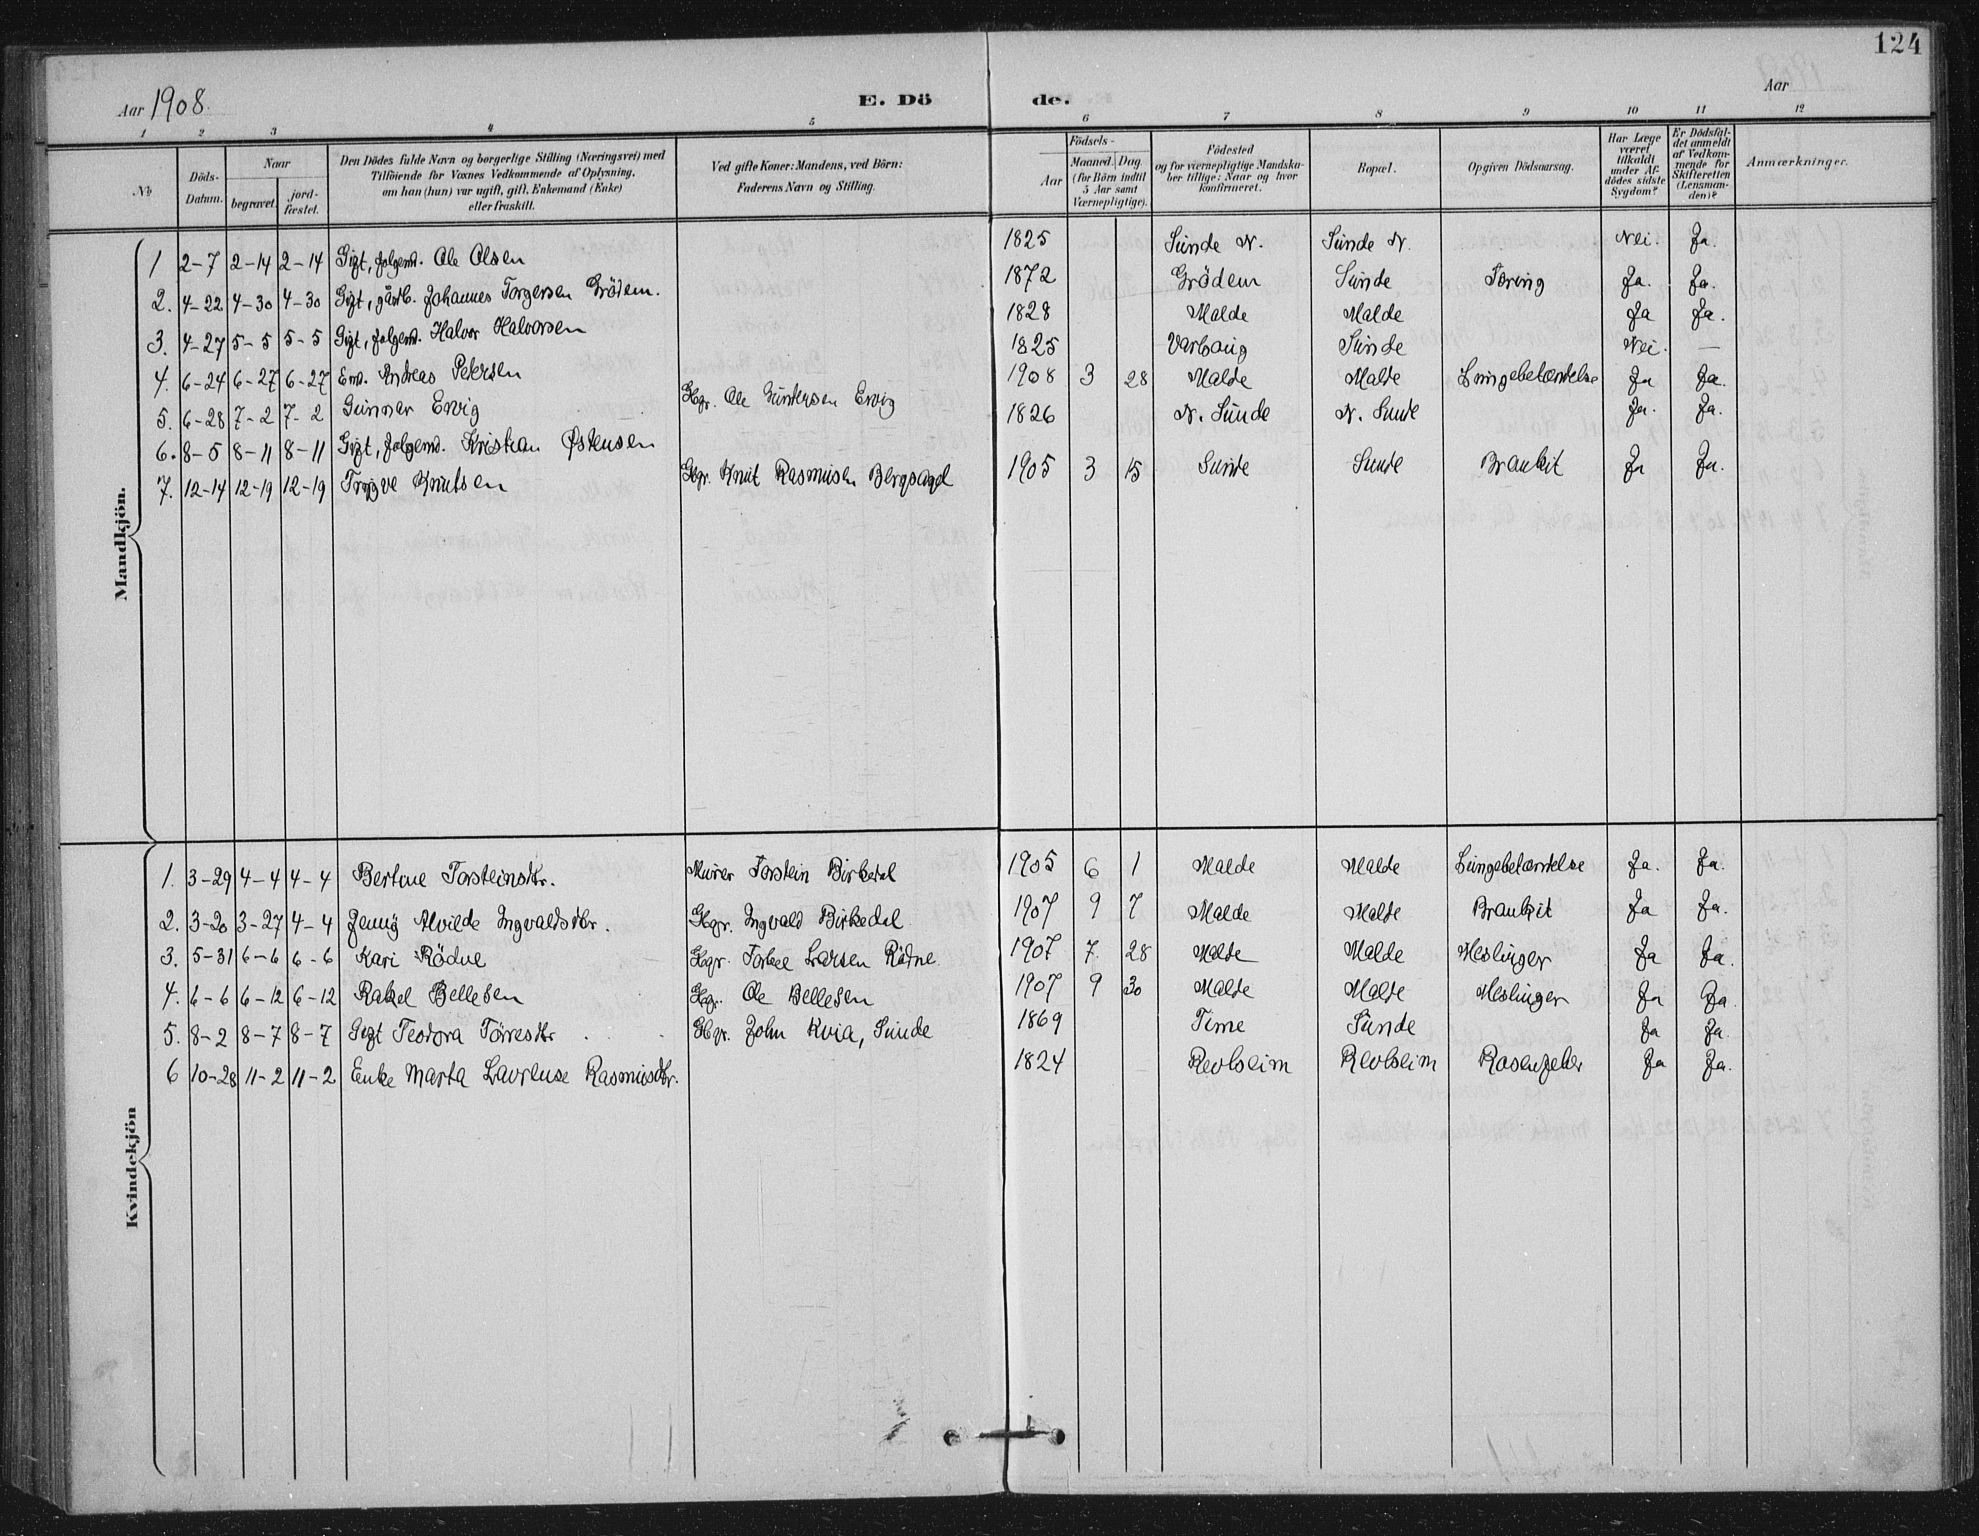 124
Aar 1908.
E. Dö
de.
Aar
1 2 3 4 5 6 7 8 9 10 11 12
№
Döds-Datum.
Naar
begravet.
jord-fæstet.
Den Dödes fulde Navn og borgerlige Stilling (Næringsvei) med
Tilföiende for Voxnes Vedkommende af Oplysning,
om han (hun) var ugift, gift, Enkemand (Enke)
eller fraskilt.
Ved gifte Koner: Mandens, ved Börn:
Faderens Navn og Stilling.
Födsels-
Aar
Maaned. Dag.
(for Börn indtil
5 Aar samt
Værnepligtige).
Födested
og for værnepligtige Mandska-
ber tillige: Naar og hvor
konfirmeret.
Bopæl.
Opgiven Dödsaarsag.
Har Læge
været
tilkaldt
under Af-
dödes sidste
Sygdom?
Er Dödsfal-
det anmeldt
af Vedkom-
mende for
Skifteretten
(Lensman-
den)?
Anmærkninger.
Mandkjön.
1 2-7 2-14 2-14 Gift, folgem. Ole Olsen 1825 Sunde N. Sunde N. Nei. Ja.
2. 4-22 4-30 4-30 Gift, gårdb. Johannes Torgersen Grödem. 1872 Grödem Sunde Tæring Ja. Ja.
3. 4-27 5-5 5-5 Gift, folgem. Halvor Halvorsen 1828 Malde Malde Ja Ja.
4. 6-24 6-27 6-27 Em. Andreas Petersen 1825 Varhaug Sunde Nei. —
5. 6-28 7-2 7-2 Gunnar Ervig Gbgr. Ole Guntersen Ervig 1908 3 28 Malde Malde Lungebetændelse Ja Ja.
6. 8-5 8-11 8-11 Gift, folgem. Kristian Østensen 1826 N. Sunde N. Sunde Ja. Ja.
7. 12-14 12-19 12-19 Trygve Knutsen Gbgr. Knut Rasmusen Bergsagel 1905 3 15 Sunde Sunde Bronkit Ja Ja.
Kvindekjön
1. 3-29 4-4 4-4 Bertine Torsteinsdtr. Murer Torstein Birkedal 1905 6 1 Malde Malde Lungebetændelse Ja. Ja.
2. 3-20 3-27 4-4 Jenny Alvilde Ingvaldsdtr. Gbgr. Ingvald Birkedal 1907 9 7 Malde Malde Bronkit Ja Ja.
3. 5-31 6-6 6-6 Kari Rödne Gbgr. Torkel Larsen Rödne 1907 7. 28 Malde Malde Meslinger Ja Ja.
4. 6-6 6-12 6-12 Rakel Bellesen Gbgr. Ole Bellesen 1907 9 30 Malde Malde Meslinger Ja Ja.
5. 8-2 8-7 8-7 Gift Teodora Törresdtr Gbgr. John Kvia, Sunde 1869 Time Sunde Ja Ja.
6 10-28 11-2 11-2 Enke Marta Lavrense Rasmusdtr. 1824 Revheim Revheim Rosenfeber Ja Ja.